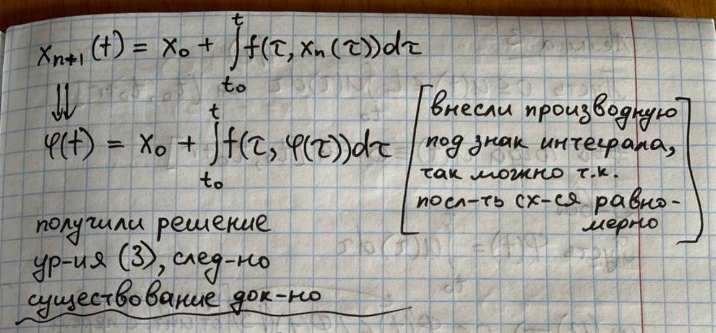 xₙ₊₁(t) = x₀ + ∫ₜ₀ᵗ f(τ, xₙ(τ))dτ
⇓
φ(t) = x₀ + ∫ₜ₀ᵗ f(τ, φ(τ))dτ
[внесли производную
под знак интеграла,
так можно т.к.
посл-ть сх-ся равно-
мерно]
получили решение
ур-ия (3), след-но
существование док-но